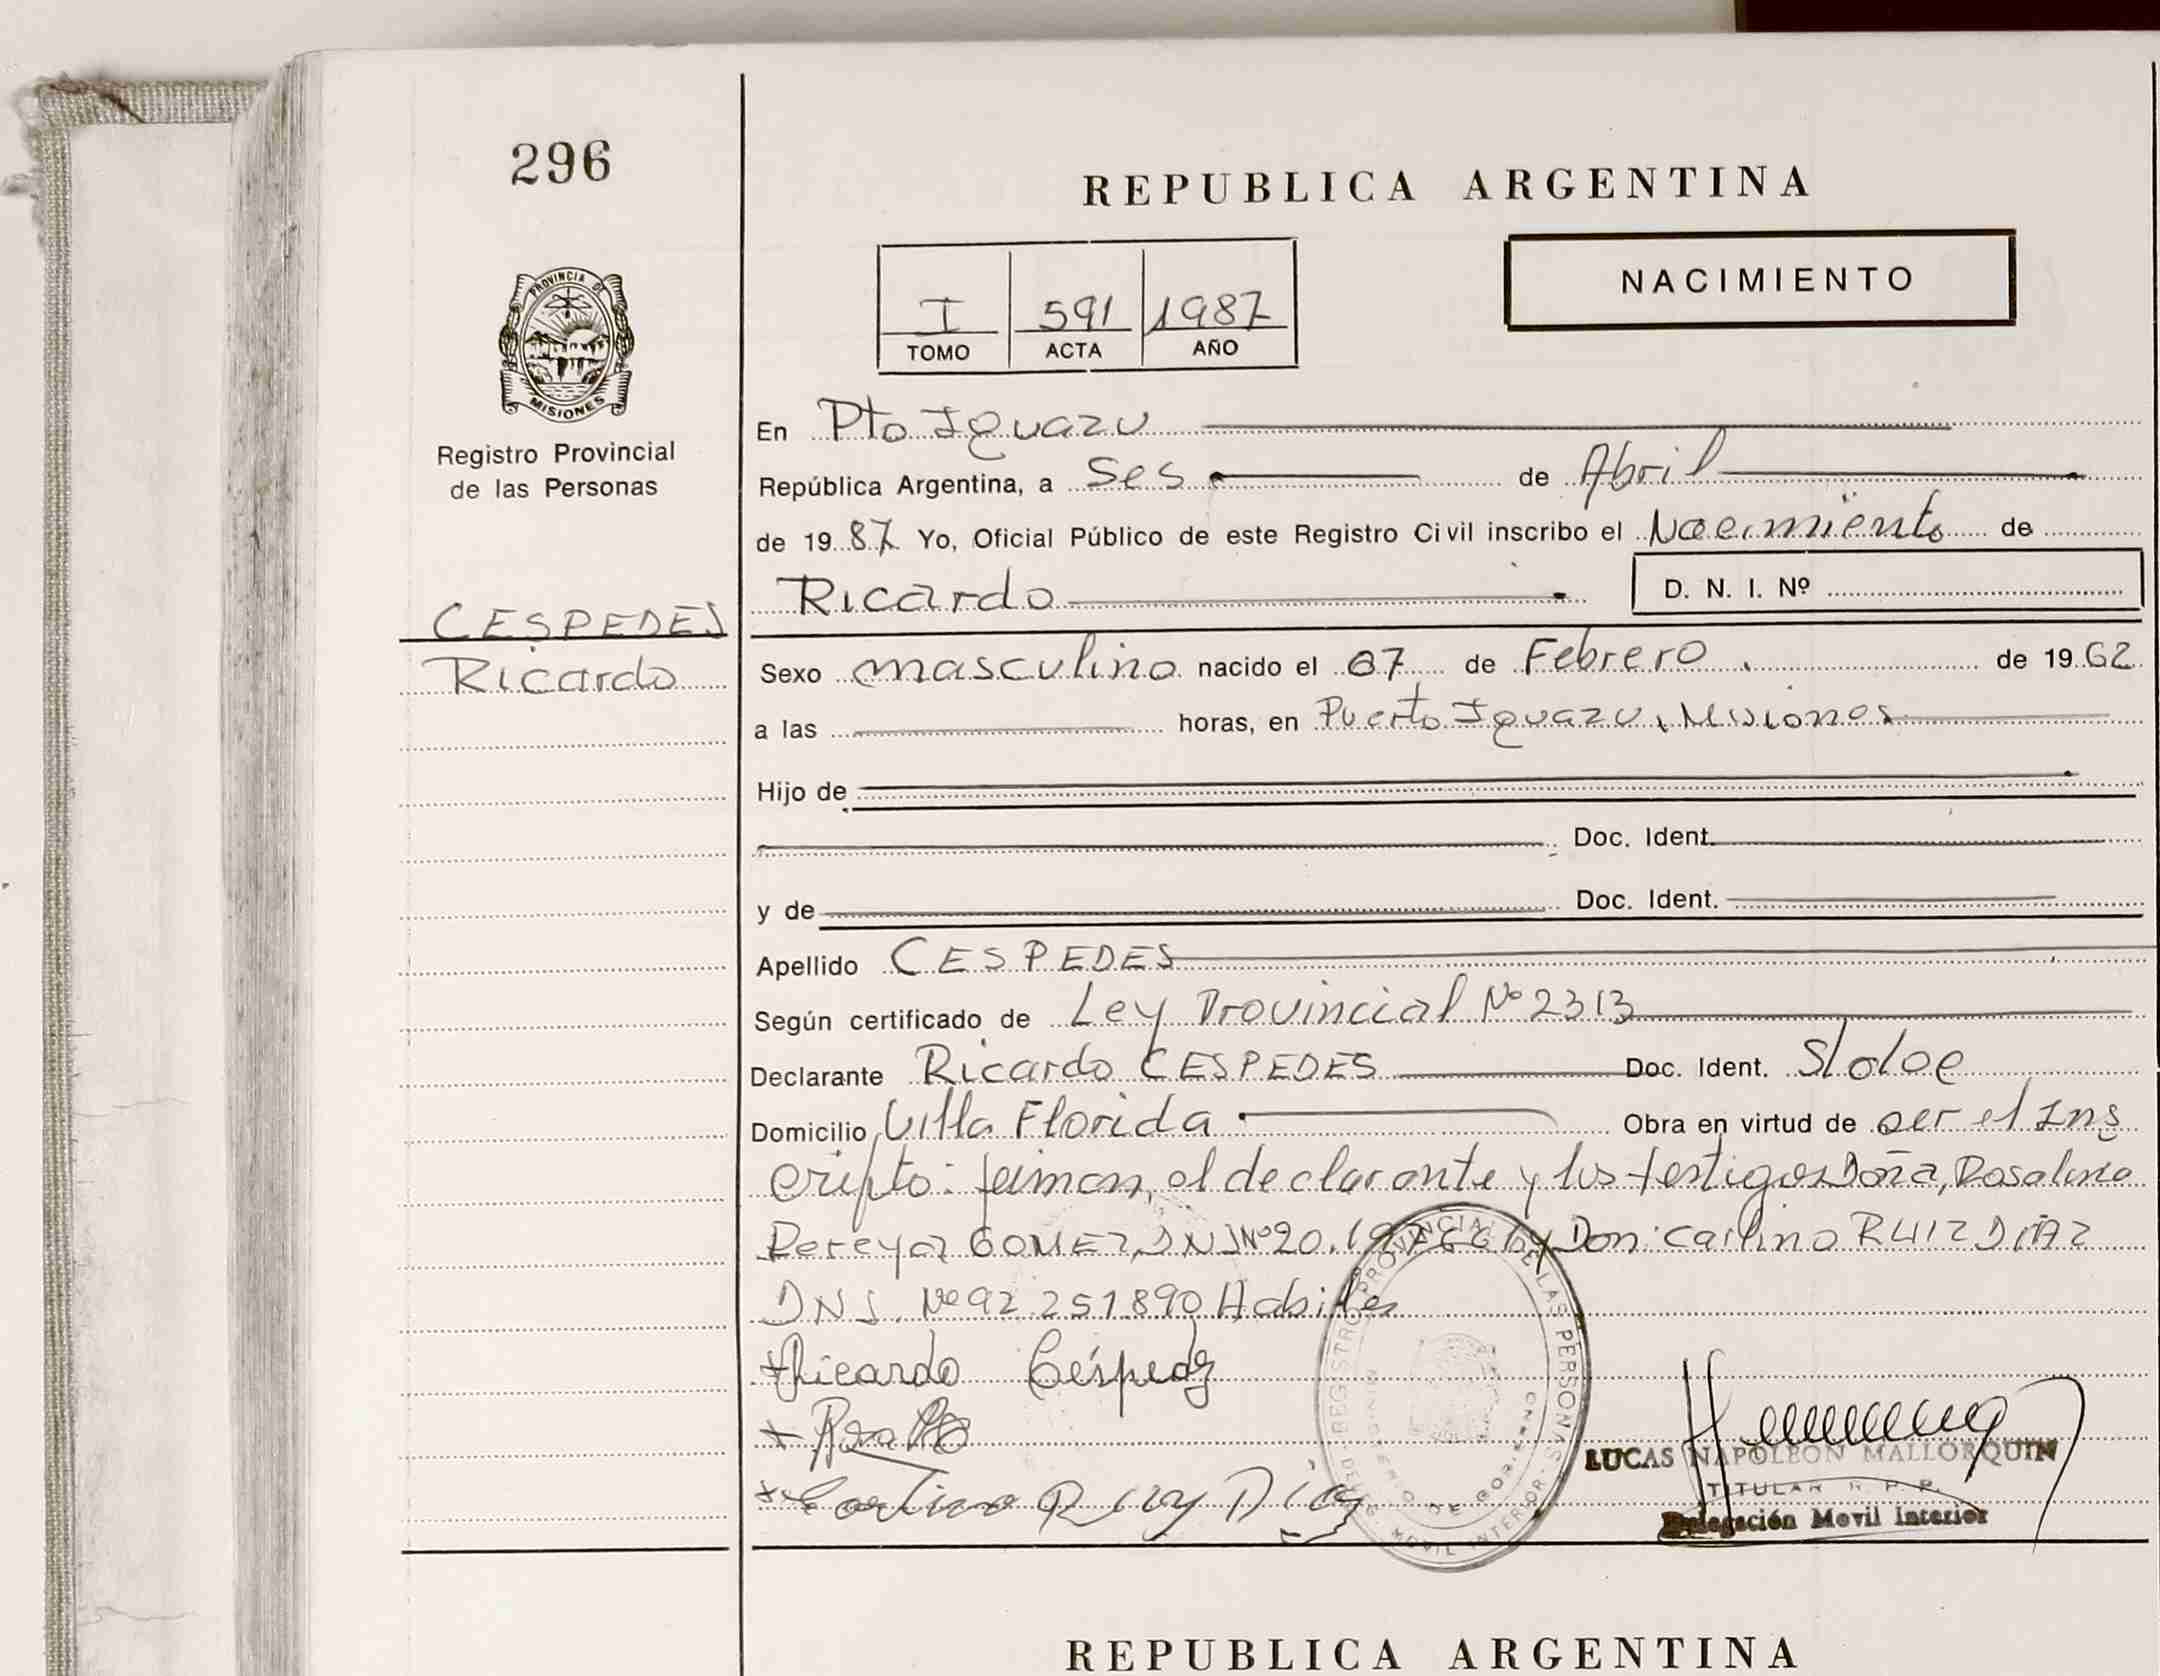 296
REPUBLICA ARGENTINA
NACIMIENTO
PROVINCIA DE
MISIONES
I 591 1987
TOMO ACTA AÑO
Registro Provincial
de las Personas
En Pto Iguazu
República Argentina, a Ses de Abril
de 1987 Yo, Oficial Público de este Registro Civil inscribo el Nacimiento de
Ricardo D. N. I. Nº
CESPEDES
Ricardo
Sexo masculino nacido el 07 de Febrero de 1962
a las horas, en Puerto Iguazu, Misiones
Hijo de
Doc. Ident.
y de Doc. Ident.
Apellido CESPEDES
Según certificado de Ley Provincial Nº 2313
Declarante Ricardo CESPEDES Doc. Ident.
Domicilio Villa Florida Obra en virtud de ser el Ins
cripto: firman, el declarante y los testigos Doña, Rosalina
Pereyra GOMEZ, DNI Nº 20. y Don: Carlino RUIZ DIAZ
DNI. Nº 92.251.890 Habiles
Ricardo Céspedez
Carlino Ruy Diaz
REGISTRO PROVINCIAL DE LAS PERSONAS
MINISTERIO DE GOBIERNO
MOVIL INTERIOR
LUCAS NAPOLEON MALLORQUIN
TITULAR R. P. P.
Delegación Movil Interior
REPUBLICA ARGENTINA